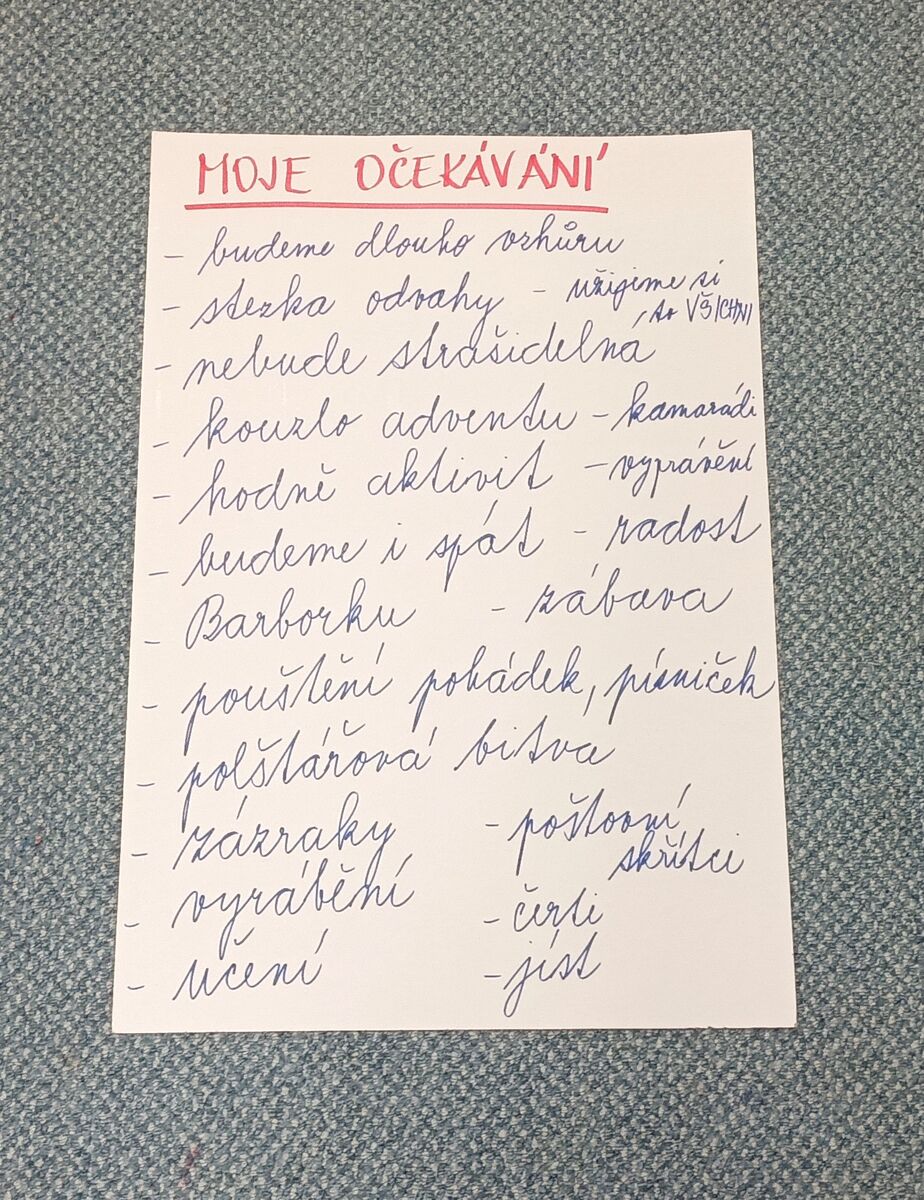 MOJE OČEKÁVÁNÍ
- budeme dlouho vzhůru
- stezka odvahy - užijeme si
to VŠICHNI
- nebude strašidelná
- kouzlo adventu - kamarádi
- hodně aktivit - vyprávění
- budeme i spát - radost
- Barborku - zábava
- pouštění pohádek, písniček
- polštářová bitva
- zázraky - poštovní
skřítci
- vyrábění - čerti
- učení - jíst